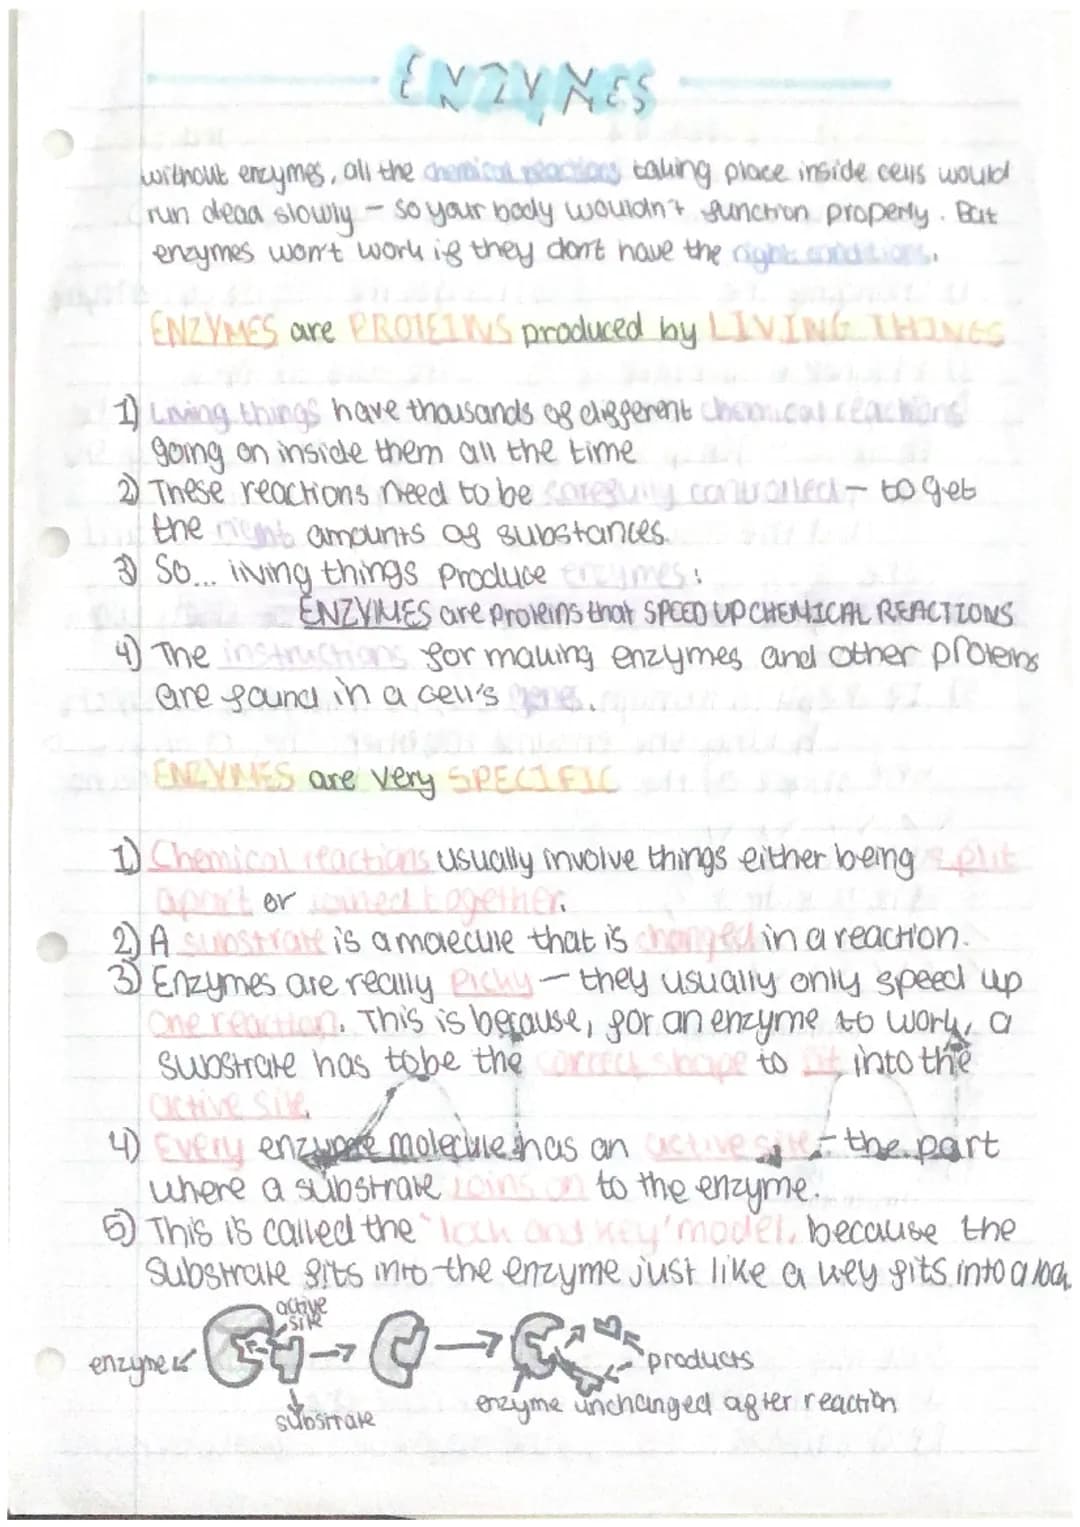 ENZYMES
without enzymes, all the chemical reactions taking place inside cells would
run dead slowly - so your body wouldn't function properly. But
enzymes won't work if they don't have the right conditions.
ENZYMES are PROTEINS produced by LIVING THINGS
1) Living things have thousands of different chemical reactions
going on inside them all the time
2) These reactions need to be carefully controlled - to get
the right amounts of substances.
3) So... living things produce enzymes:
ENZYMES are proteins that SPEED UP CHEMICAL REACTIONS
4) The instructions for making enzymes and other proteins
are found in a cell's genes.
ENZYMES are very SPECIFIC
1) Chemical reactions usually involve things either being split
apart or joined together.
2) A substrate is a molecule that is changed in a reaction.
3) Enzymes are really picky - they usually only speed up
one reaction. This is because, for an enzyme to work, a
substrate has to be the correct shape to fit into the
active site.
4) Every enzyme molecule has an active site - the part
where a substrate joins on to the enzyme.
5) This is called the 'lock and key' model, because the
substrate fits into the enzyme just like a key fits into a lock.
active
site
enzyme
products
substrate
enzyme unchanged after reaction